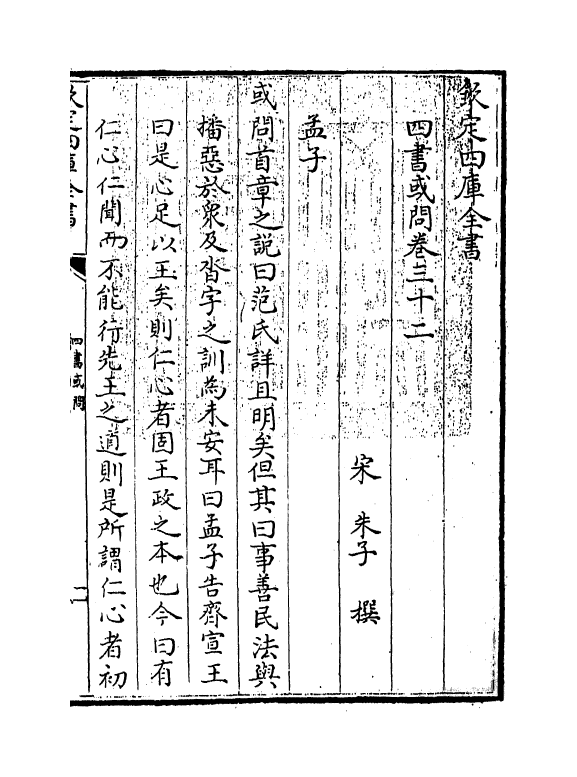 欽定四庫全書
四書或問卷三十二
宋 朱子 撰
孟子
或問首章之説曰范氏詳且明矣但其曰事善民法與
播惡於衆及沓字之訓為未安耳曰孟子告齊宣王
曰是心足以王矣則仁心者固王政之本也今曰有
仁心仁聞而不能行先王之道則是所謂仁心者初
欽定四庫全書
四書或問